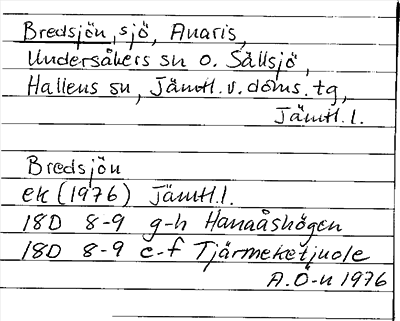 Bredsjön, sjö, Anaris,
Undersåkers sn o. Sällsjö,
Hallens sn, Jämtl. v. doms. tg,
Jämtl. l.
Bredsjön
ek (1976) Jämtl. l.
18D 8-9 g-h Hanaåshögen
18D 8-9 e-f Tjärmeketjuole
A.Ö-n 1976